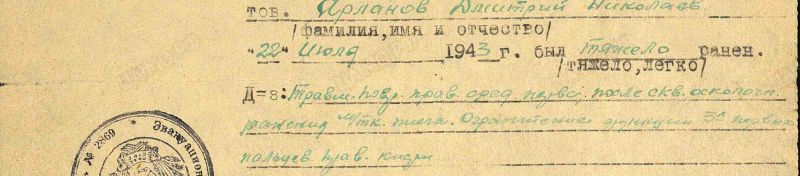 тов. Арланов Дмитрий Николаев.
/фамилия, имя и отчество/
"22" Июля 1943 г. был тяжело ранен.
/тяжело, легко/
Д=з: Травм. повр. прав. сред. нерва, после скв. осколочн.
ранения м/тк. плеча. Ограничение функции 3х первых
пальцев прав. кисти
№ 2869 * Эвакуацион